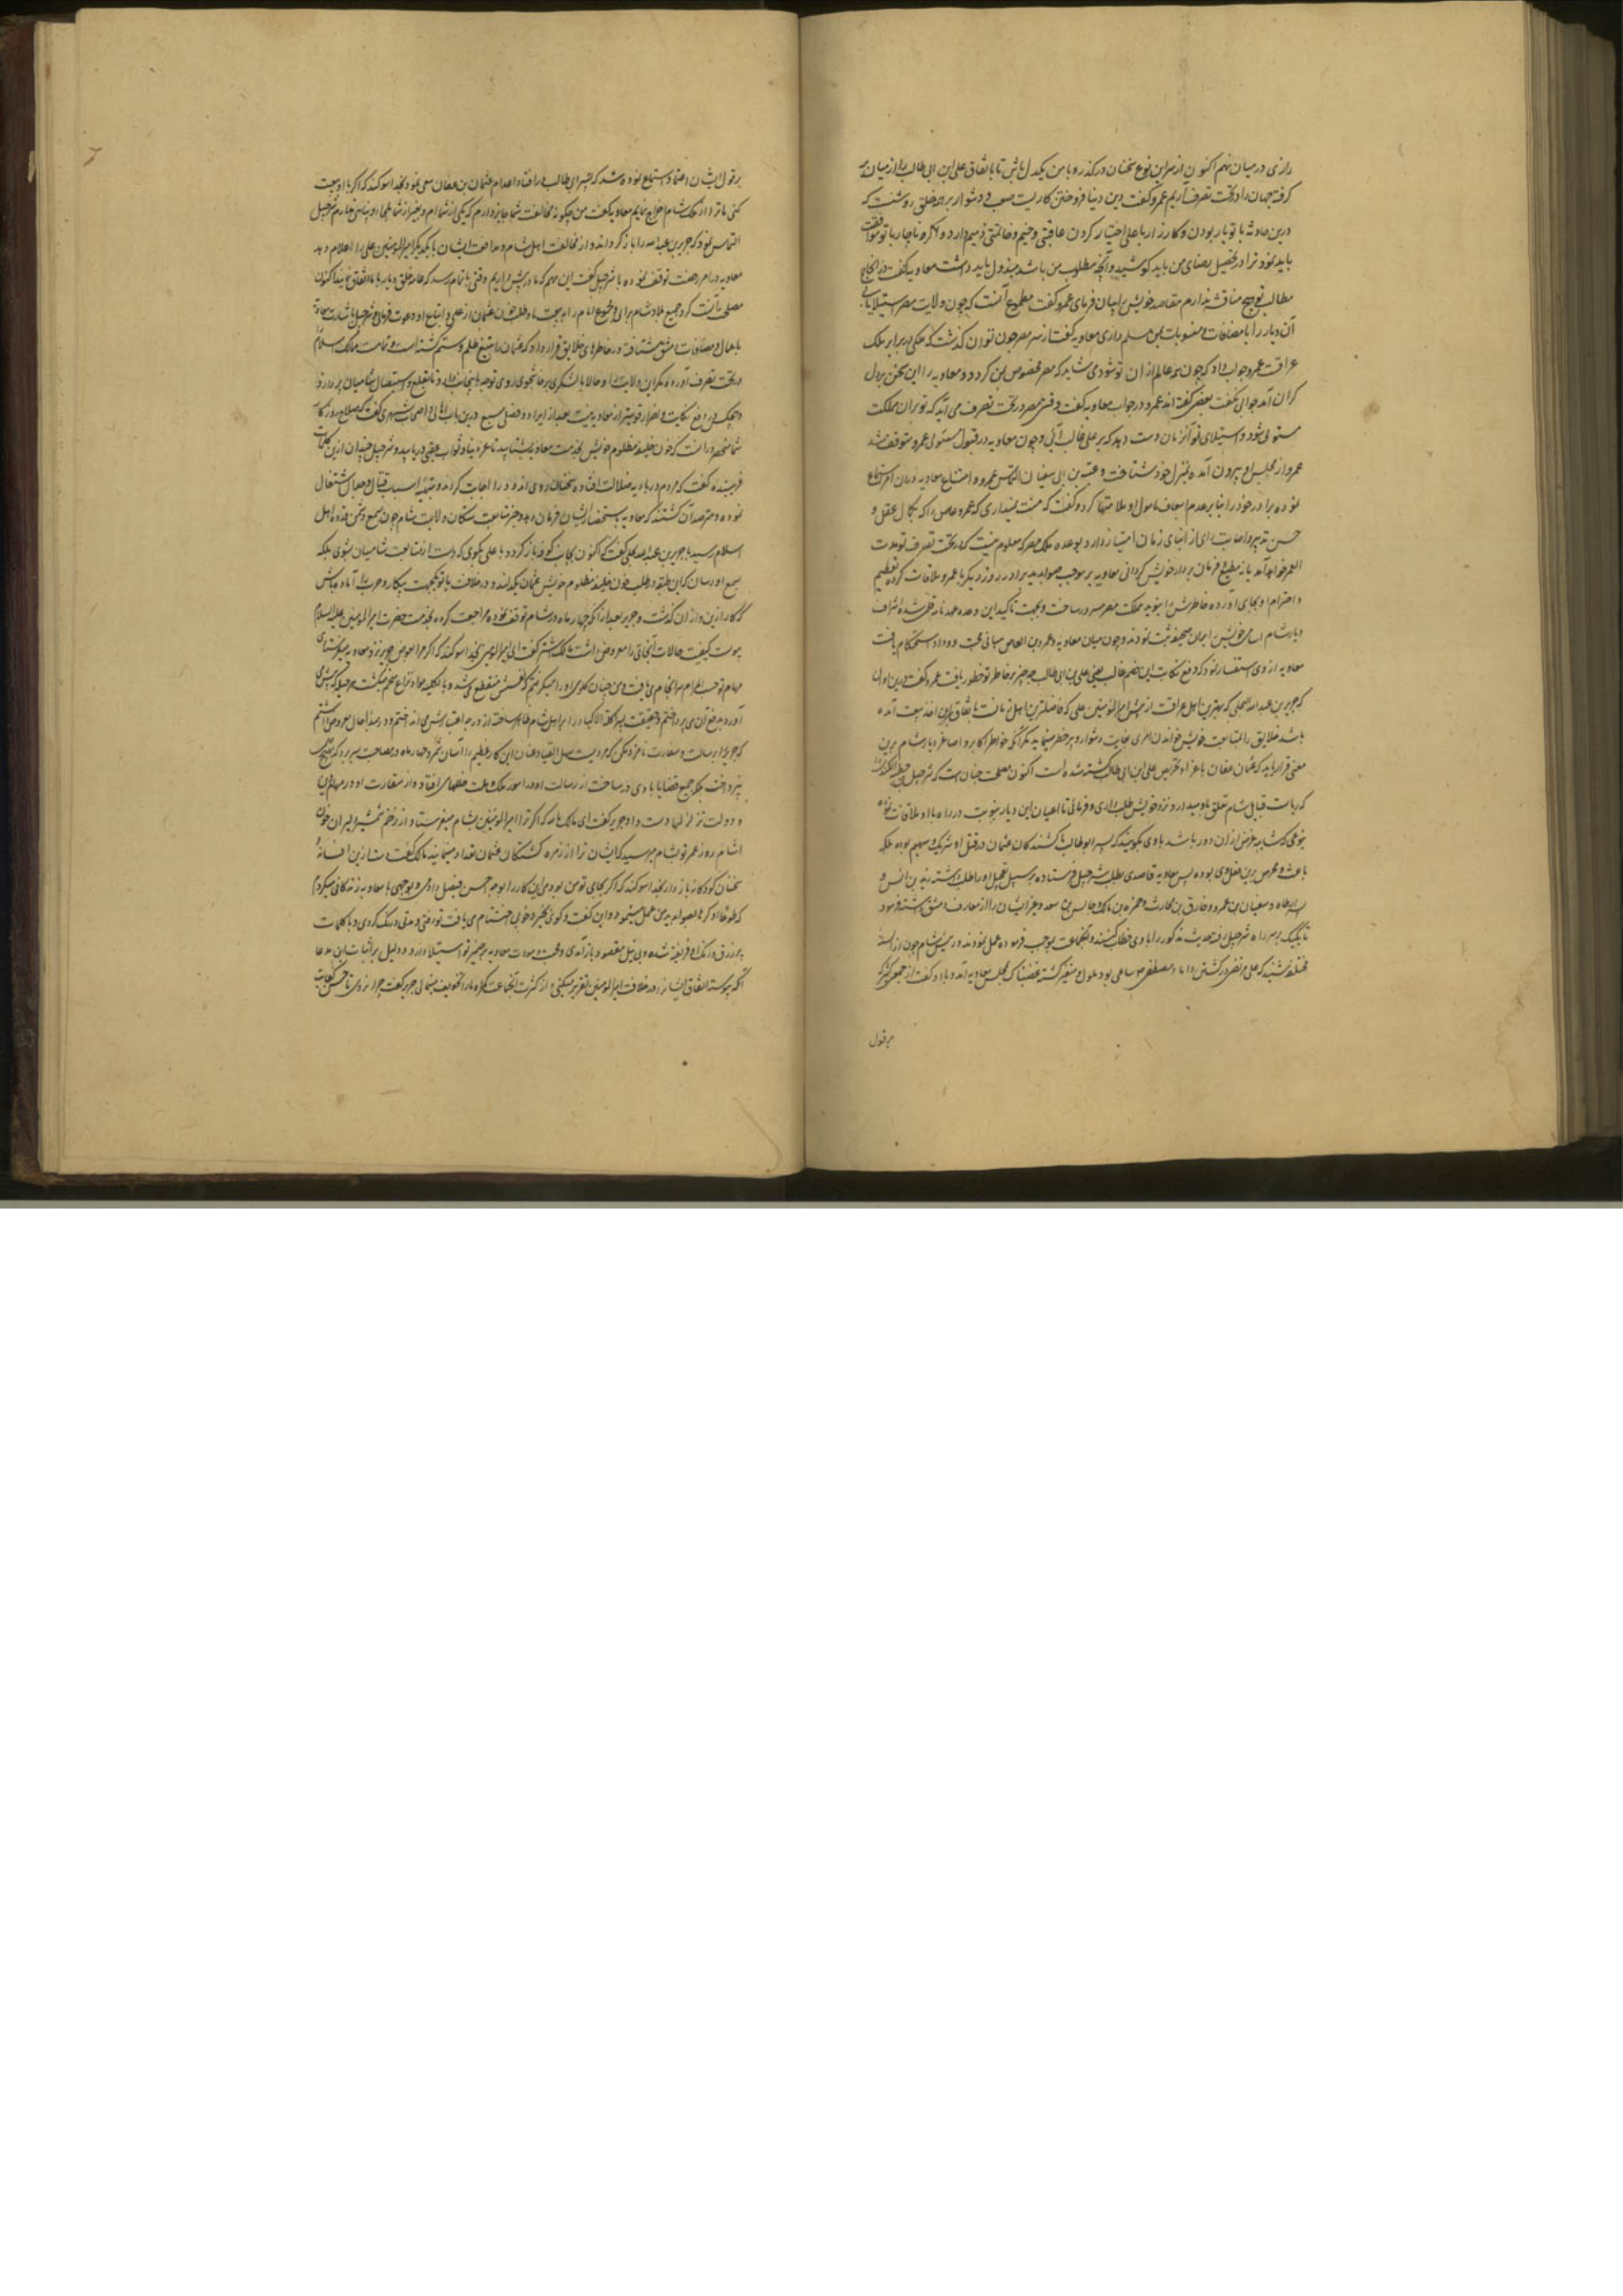 رازی در میان نهم اکنون از سر این نوع سخنان در گذر و با من یکدل باش تا باتفاق علی ابن ابی طالب را از میان بر
گرفته جهان را در تحت تصرف آریم عمرو گفت دین بدنیا فروختن کاریست صعب و دشوار بر همه خلق روشنست که
درین حادثه با تو یار بودن و کارزار با علی اختیار کردن عاقبتی وخیم و خاتمتی ذمیم دارد و اگر ناچار با تو موافقت
باید نمود ترا در تحصیل رضای من باید کوشید و آنچه مطلوب من باشد مبذول باید داشت معاویه گفت در انجاح
مطالب تو هیچ مناقشه ندارم مقاصد خویش را بیان فرمای عمرو گفت مطموع آنست که چون ولایت مصر استیلا یابی
آن دیار را با مضافات و منسوبات بمن مسلم داری معاویه گفت از سر مصر چون توان گذشت که ملکی برابر ملک
عراقست عمرو جواب داد که چون همه عالم از ان تو شود می شاید که مصر مخصوص بمن گردد و معاویه را این سخن بر دل
گران آمد جوابی نگفت بعضی گفته اند عمرو در جواب معاویه گفت وقتی مصر در تحت تصرف می آید که تو بران مملکت
مستولی شود و استیلای تو آنزمان دست دهد که بر علی غالب آئی و چون معاویه در قبول مسئول عمرو متوقف شد
عمرو از مجلس او بیرون آمده بمنزل خود شتافت و عتبه بن ابی سفیان التماس عمرو و امتناع معاویه دران امر استماع
نموده برادر خود را بنا بر عدم اسعاف مأمول او ملامتها کرد و گفت که منت نمیداری که عمرو عاص را که بکمال عقل و
حسن تدبیر و اصابت رای از ابنای زمان امتیاز دارد بوعده ملک مصر که معلوم نیست که در تحت تصرف تو مدت
العمر خواهد آمد یا نه مطیع و فرمان بردار خویش گردانی معاویه بر موجب صوابدید برادر روز دیگر با عمرو ملاقات کرده تعظیم
و احترام او بجای آورده خاطرش را بنوید مملکت مصر مسرور ساخت و بجهت تاکید این وعده عهدنامه قلمی شده اشراف
دیار شام اسامی خویش را بران صحیفه ثبت نمودند و چون میان معاویه و عمرو بن العاص مبانی محبت و وداد استحکام یافت
معاویه از وی استفسار نمود که در دفع نکایت این خصم غالب یعنی علی بن ابی طالب چه چیز بر خاطر تو خطور یافت عمرو گفت درین اوان
که جریر بن عبد الله البجلی که بهترین اهل عراقست از پیش امیر المؤمنین علی که فاضلترین اهل زمانست باتفاق باخذ بیعت آمده
باشد خلایق را بمتابعت خویش خواندن امری بغایت دشوار و پر خطر مینماید مگر آنکه خواطر اکابر و اصاغر دیار شام برین
معنی قرار یابد که عثمان عفان باغرا و تحریص علی ابن ابی طالب کشته شده است اکنون مصلحت چنانست که شرحبیل بن السمط الکندی را
که ریاست قبایل شام تعلق باو میدارد نزد خویش طلب داری و فرمائی تا اعیان این دیار بنوبت در راه با او ملاقات نموده
بنوعی که شایبه غرض ازان دور باشد باوی بگویند که پسر ابو طالب با کشندگان عثمان در قتل او شریک و سهیم بوده بلکه
باعث و محرص برین فعل وی بوده پس معاویه قاصدی بطلب شرحبیل فرستاده بر سبیل تعجیل او را طلب داشته یزید بن انس و
بسر بن ارطاة و سفیان بن عمرو و مخارق بن الحارث و حمزه بن مالک و حابس بن سعد و غیر ایشان را از معارف دمشق داشته فرمود
تا یکیک بر سر راه شرحبیل رفته حدیث مذکور را با وی خطاب کنند و آنجماعت بموجب فرموده عمل نمودند و رئیس شام چون از السنه
مختلفه شنید که علی مرتضی در کشتن داماد مصطفی ص ساعی بود ملول و متغیر گشته غضبناک بمجلس معاویه آمد و با او گفت از جمعی کثیر که
بر قول
بر قول ایشان اعتماد است استماع نموده شد که پسر ابی طالب در افنا و اعدام عثمان بن عفان سعی نمود بخدا سوگند که اگر با او بیعت
کنی ما ترا از ملک شام اخراج نماییم معاویه گفت من چگونه مخالفت شما جایز دارم که یکی از شما ام و بغیر از شما ملجاء و پناهی ندارم شرحبیل
التماس نمود که جریر بن عبد الله را باز گرداند و از مخالفت اهل شام و موافقت ایشان با یکدیگر امیر المؤمنین علی را اعلام دهد
معاویه در امر رخصت توقف نموده با شرحبیل گفت این مهم که ما در پیش داریم وقتی باتمام رسد که عامه خلق دیار با ما اتفاق نمایند اکنون
مصلحت آنست که در جمیع بلاد شام برای و جموع انام را به بیعت ما و طلب خون عثمان از علی و اتباع او دعوت فرمائی شرحبیل باشارت معاویه
باعمال و مضافات دمشق شتافته در خاطرهای خلایق قرار داد که عثمان را علی بتیغ ظلم و ستم کشته است و تمامت ممالک اسلام
در تحت تصرف آورده مگر این ولایت را و حالا با لشکری پرخاشجوی روی توجه باینجانب نهاده تا بقلع و استیصال شامیان پردازد
و هیچکس در دفع نکایت و اضرار قویتر از معاویه نیست بعد از ایراد فصلی مسبع درین باب اهالی و اصحاب شهری گفت که صلاح روزگار
شما منحصر درانست که خون خلیفه مظلوم خویش بخدمت معاویه بشتابید تا عز دنیا و ثواب عقبی دریابید و شرحبیل چندان ازین کلمات
فریبنده گفت که مردم در بادیه ضلالت افتاده سخنان روی اندود را اجابت کردند و بتهیه اسباب قتال و جدال اشتغال
نموده و مترصد آن گشتند که معاویه باستحضار ایشان فرمان دهد و خبر متابعت سکان ولایت شام چون بسمع دشمن قدوه اهل
اسلام رسید با جریر بن عبد الله بجلی گفت که اکنون بجانب کوفه باز گرد و با علی بگوی که دست از متابعت شامیان بشوی بلکه
بسمع او رسان که این طبقه در طلب خون خلیفه مظلوم خویش عثمان یکدلند و در خلافت با تو یکجهت پیکار و حرب را آماده باش
که کار ازین و ازان گذشت و جریر بعد از آنکه چهار ماه در شام توقف نموده مراجعت کرده بخدمت حضرت امیر المؤمنین علیه السلام
پیوست کیفیت حالات آنجائی را معروض داشت مالک اشتر گفت ای امیر المومنین بخدا سوگند که اگر مرا بعوض جریر نزد معاویه میفرستادی
مهام بر حسب المرام سرانجام می یافت و من چنان گلوی او را میگرفتم که نفسش منقطع می شد و بالکلیه مواد نزاع منحسم میگشت هر حیله که پیش می
آورد بدفع آن می پرداختم و حقیقت پسر آکلة الاکباد را بر اهل شام ظاهر ساخته از درجه اعتبارش می انداختم و در مبدأ حال معروض داشتم
که جریر را برسالت و سفارت نامزد مکن که مردیست سهل القیاد و عنان این کار عظیم را آسان نگیرد چهار ماه در مصاحبت بسر برد که بهیچ
نپرداخت بلکه جمیع قضایا با وی در ساخت از رسالت او در امور ملک و ملت خللهای افتاد و از سفارت او در مهام دین
و دولت تزلزلها دست داد جریر گفت ای مالک والله که اگر ترا امیر المؤمنین بشام میفرستاد از زخم شمشیر دلیران خون
آشام روز عمر تو بشام میرسید که ایشان ترا از زمره کشندگان عثمان تعداد مینمایند مالک گفت دست ازین افسانه
سخنان کودکانه باز دار بخدا سوگند که اگر بجای تو من بودمی این کار را بوجه احسن فیصل دادمی و بوجهی با معاویه زندگانی میکردم
که طوعا او کرها بصوابدید من عمل مینمود و این گفت و گوی بخیر و خوبی اختتام می یافت تو رفتی و مدتی درنگ کردی و با کلمات
پر زرق و رنگ او فریفته شده و بی نیل مقصود باز آمدی و محبت و مودت معاویه بر ضمیر تو استیلا دارد و دلیل بر اثبات این مدعا
آنکه پیوسته اتفاق ایشانرا در خلاف امیر المومنین تقریر میکنی و از کثرت آنجماعت گمراه ما را تخویف مینمایی جریر گفت چرا نزوی تا حسن کفایت